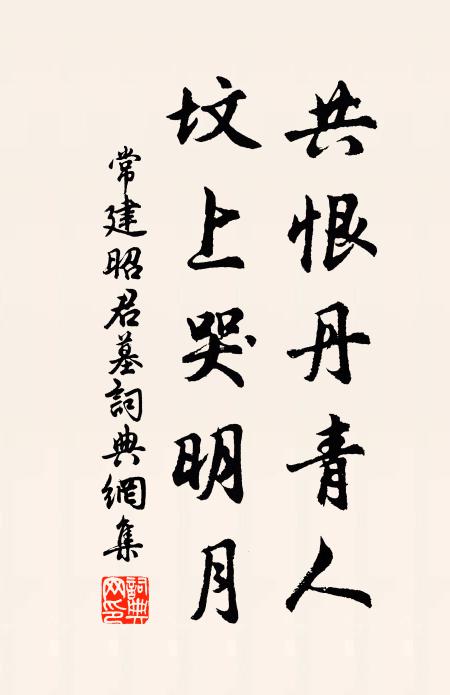 共恨丹青人
坟上哭明月
常建昭君墓詞典網集
詞典網印